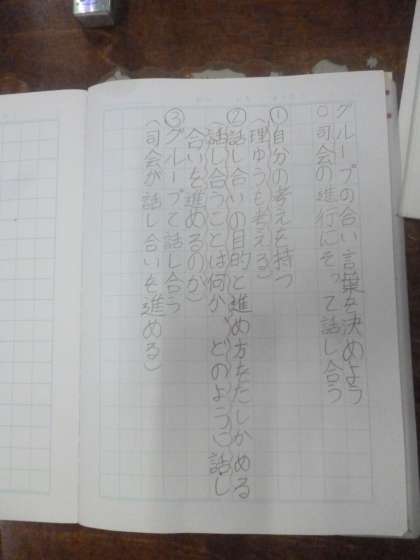 グループの合い言葉を決めよう
○司会の進行にそって話し合う
①自分の考えを持つ
(理ゆうも考える)
②話し合いの目的と進め方をたしかめる
(話し合うことは何か、どのように話し
合いを進めるのか)
③グループで話し合う
(司会が話し合いを進める)